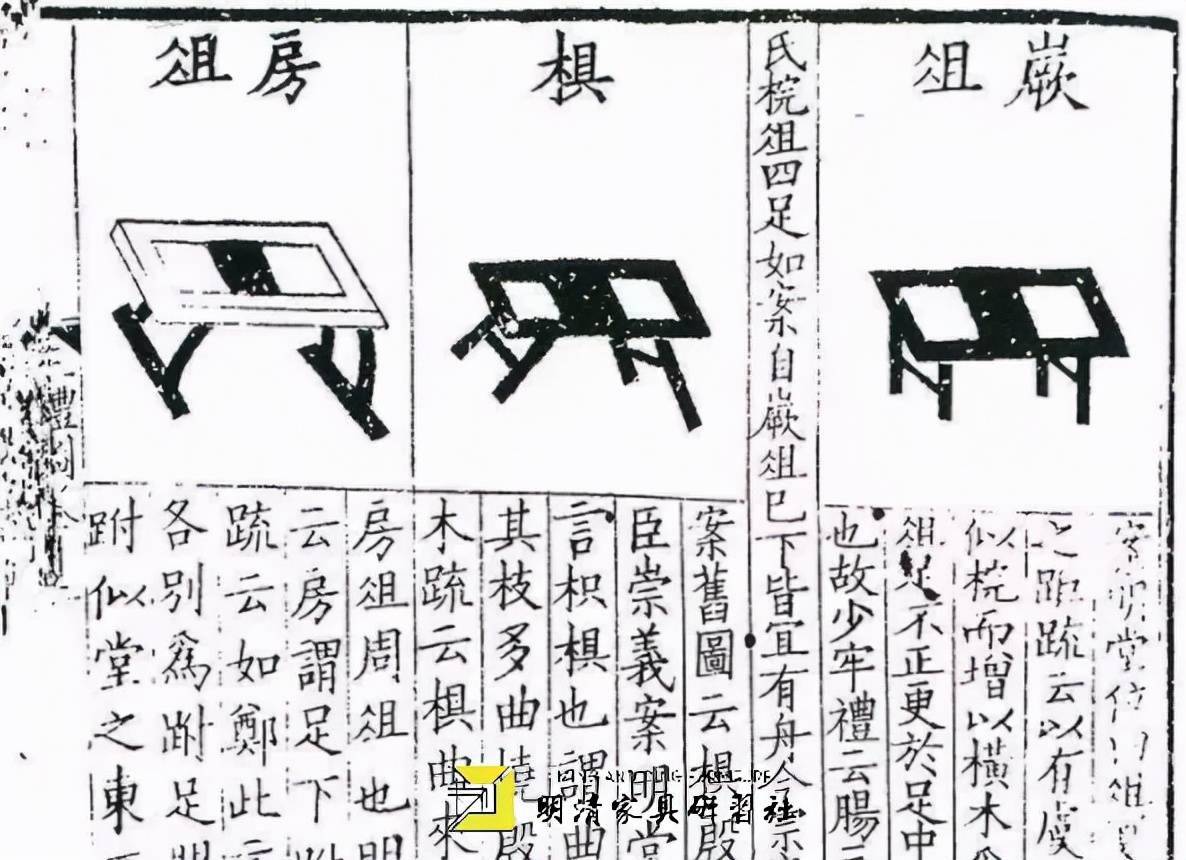 嶡俎
案明堂位
之距疏云以有虞
似梡而增以横木
俎足不正更於足中
也故少牢禮云腸三
氏梡俎四足如案自嶡俎已下皆宜有舟今
椇
案舊圖云椇殷
臣崇義案明堂
言枳椇也謂曲
其枝多曲橈殷
木疏云椇曲來
房俎
房俎周俎也明
云房謂足下跗
疏云如鄭此言
各別爲跗足
跗似堂之東
禮圖
明清家具研習社